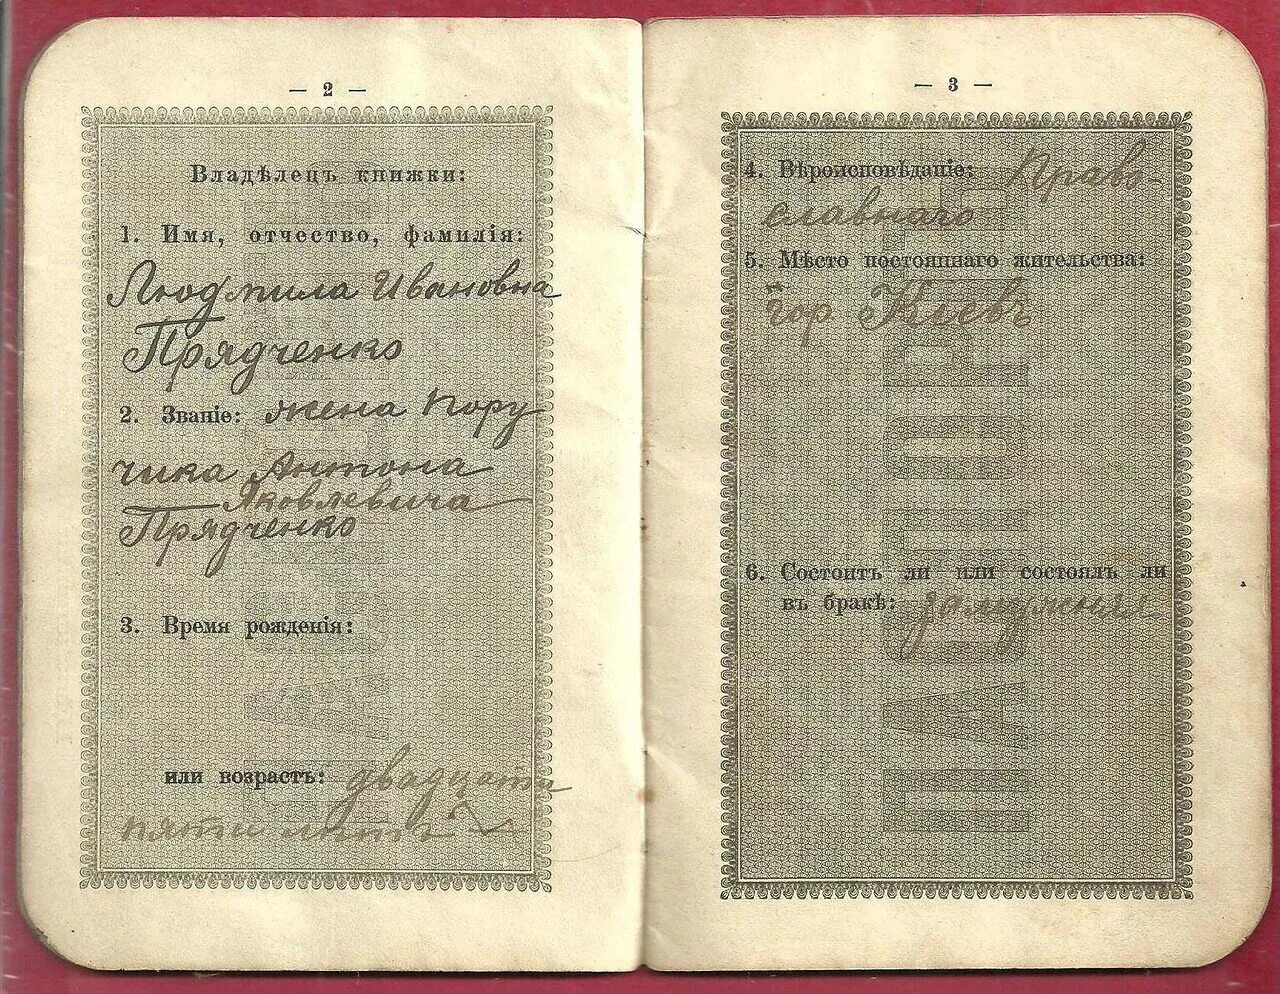 — 2 —
Владѣлецъ книжки:
1. Имя, отчество, фамилія:
Людмила Ивановна
Прядченко
2. Званіе: жена Пору
чика Антона
Яковлевича
Прядченко
3. Время рожденія:
или возрастъ: двадцати
пяти лѣтъ
— 3 —
4. Вѣроисповѣданіе: Право-
славнаго
5. Мѣсто постояннаго жительства:
гор Кіевъ
6. Состоитъ ли или состоялъ ли
въ бракѣ: замужняя